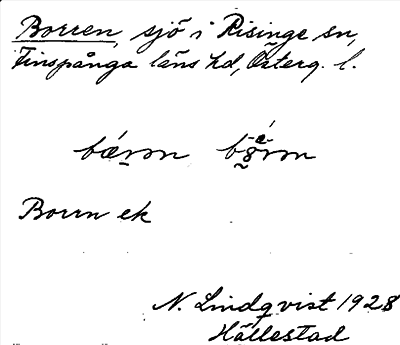 Borren, sjö i Risinge sn,
Finspånga läns hd, Österg. l.
Borrn ek
N. Lindqvist 1928
Hällestad